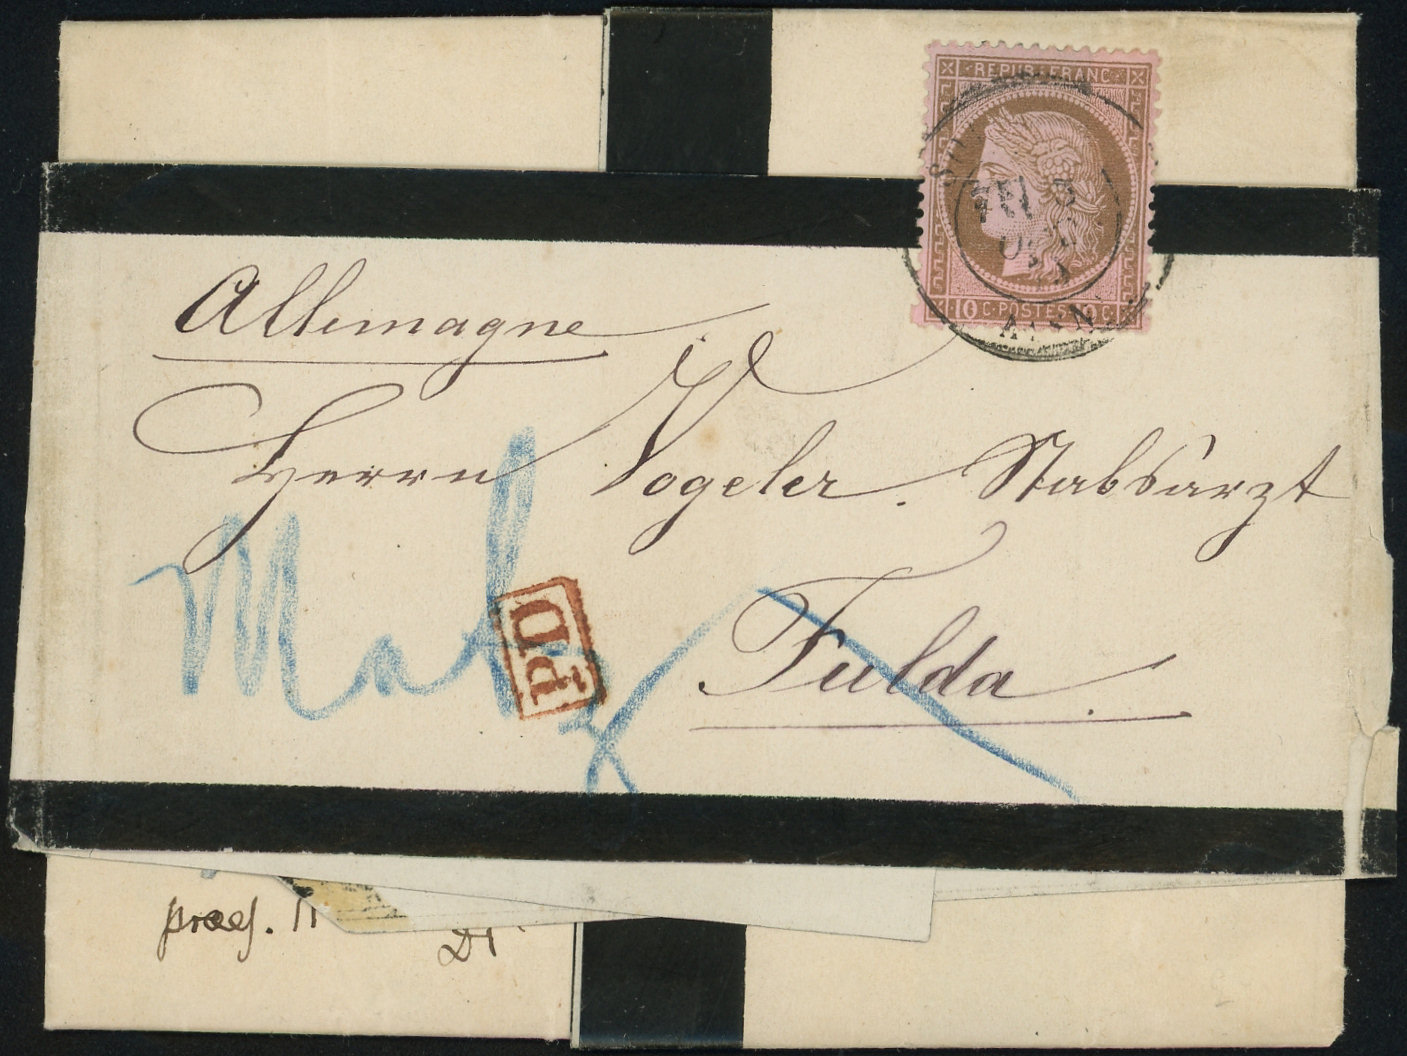 REPUB·FRANC
10 C·POSTES·10 C
Allemagne
Herrn Vogeler. Stabsarzt
Fulda
PD
praes. 11